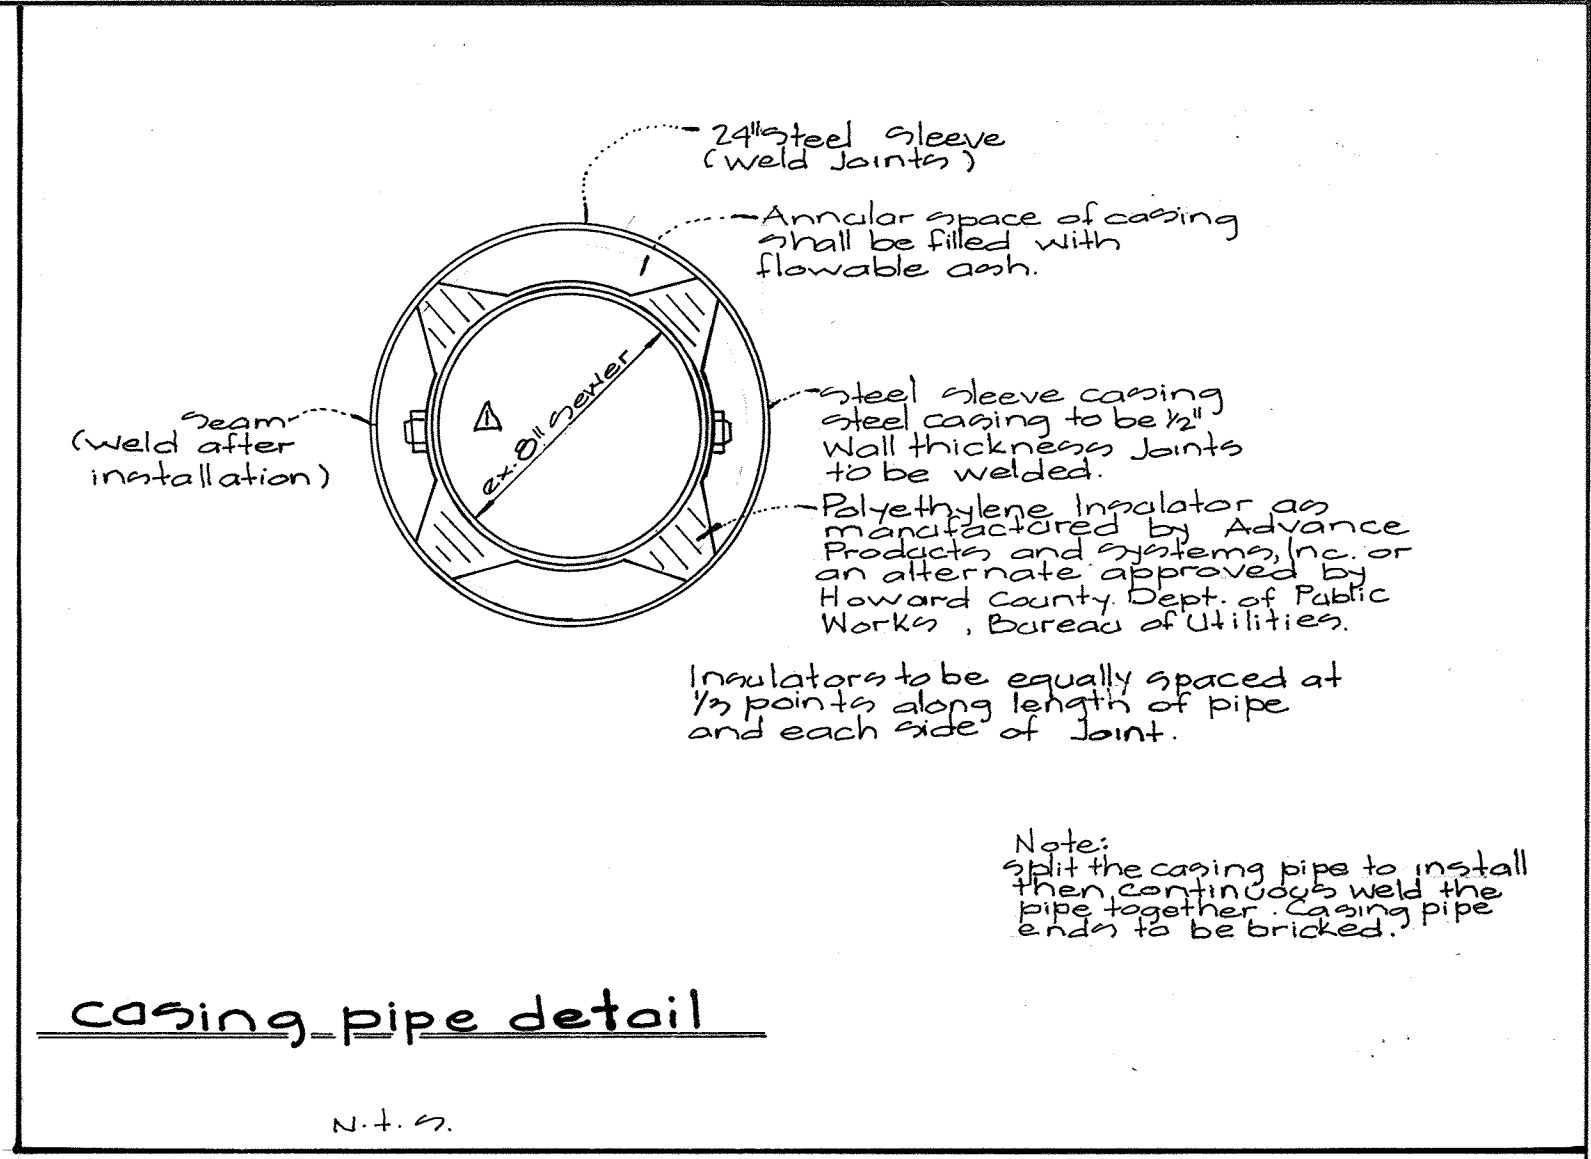 24" Steel Sleeve
(Weld Joints)
Annular space of casing
shall be filled with
flowable ash.
Seam
(Weld after
installation)
1
ex. 8" Sewer
Steel Sleeve casing
Steel casing to be 1/2"
Wall thickness Joints
to be welded.
Polyethylene Insulator as
manufactured by Advance
Products and Systems, Inc. or
an alternate approved by
Howard County. Dept. of Public
Works, Bureau of Utilities.
Insulators to be equally spaced at
1/3 points along length of pipe
and each side of Joint.
Note:
Split the casing pipe to install
then, continuous weld the
pipe together. Casing pipe
ends to be bricked.
casing pipe detail
N.t.s.